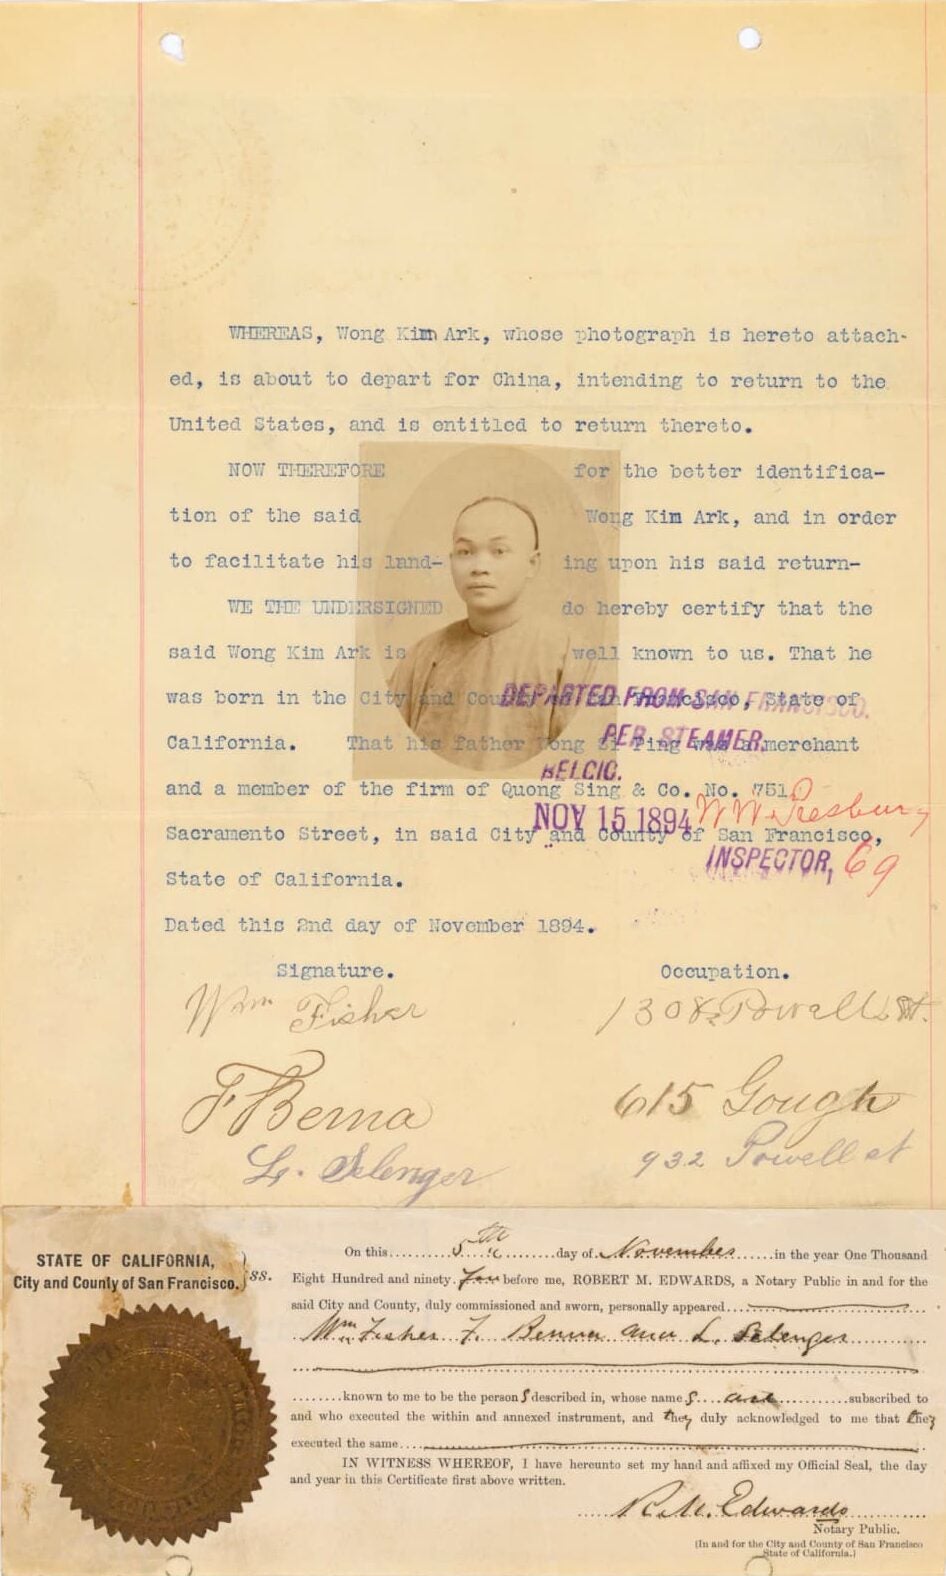 WHEREAS, Wong Kim Ark, whose photograph is hereto attach-
ed, is about to depart for China, intending to return to the
United States, and is entitled to return thereto.
NOW THEREFORE for the better identifica-
tion of the said Wong Kim Ark, and in order
to facilitate his land- ing upon his said return-
WE THE UNDERSIGNED do hereby certify that the
said Wong Kim Ark is well known to us. That he
was born in the City and County of San Francisco, State of
DEPARTED FROM SAN FRANCISCO.
California. That his father Wong Si Ping was a merchant
PER STEAMER,
BELGIC.
and a member of the firm of Quong Sing & Co. No. 751
NOV 15 1894
Sacramento Street, in said City and County of San Francisco,
INSPECTOR, 69
State of California.
Dated this 2nd day of November 1894.
Signature. Occupation.
Wm Fisher 1308 Powell St.
F Berna 615 Gough
L. Selenger 932 Powell st
STATE OF CALIFORNIA,
City and County of San Francisco. ss.
On this 5th day of November in the year One Thousand
Eight Hundred and ninety four before me, ROBERT M. EDWARDS, a Notary Public in and for the
said City and County, duly commissioned and sworn, personally appeared
Wm Fisher F. Benna and L. Selenger
known to me to be the persons described in, whose names are subscribed to
and who executed the within and annexed instrument, and they duly acknowledged to me that they
executed the same
IN WITNESS WHEREOF, I have hereunto set my hand and affixed my Official Seal, the day
and year in this Certificate first above written.
R. M. Edwards
Notary Public.
(In and for the City and County of San Francisco
State of California.)